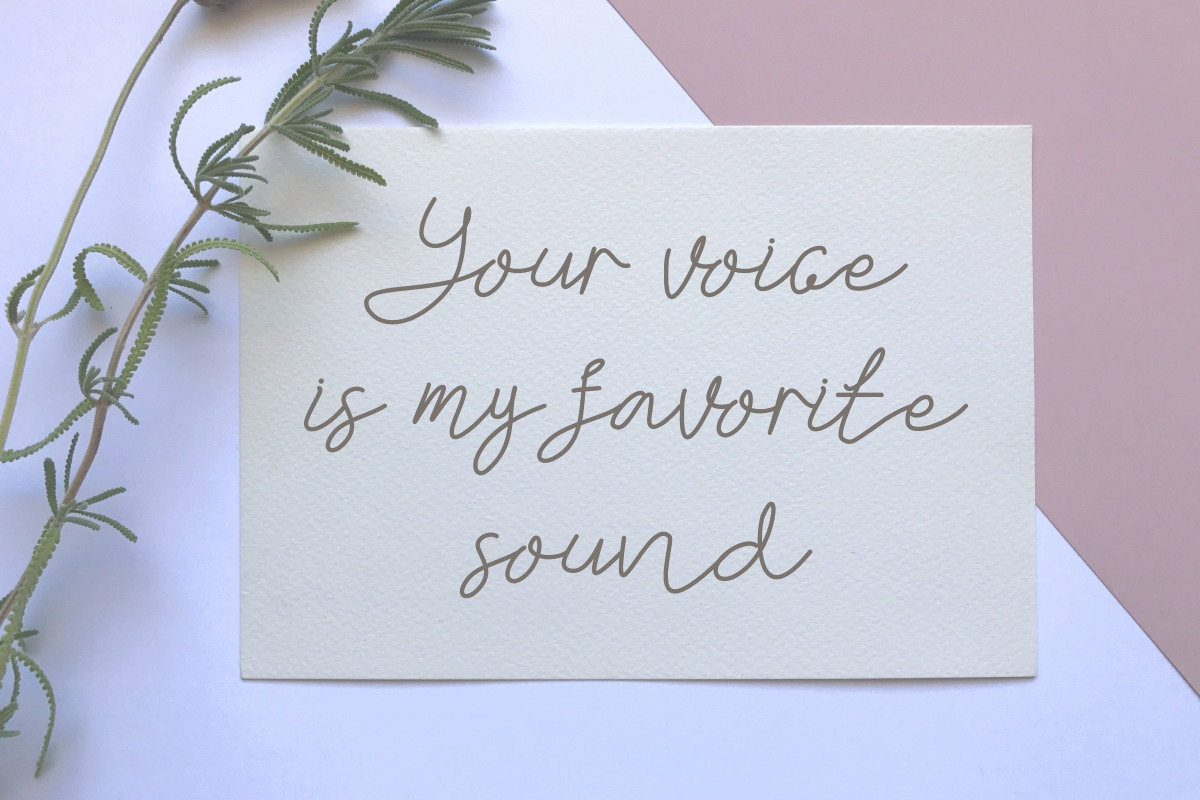 Your voice
is my favorite
sound